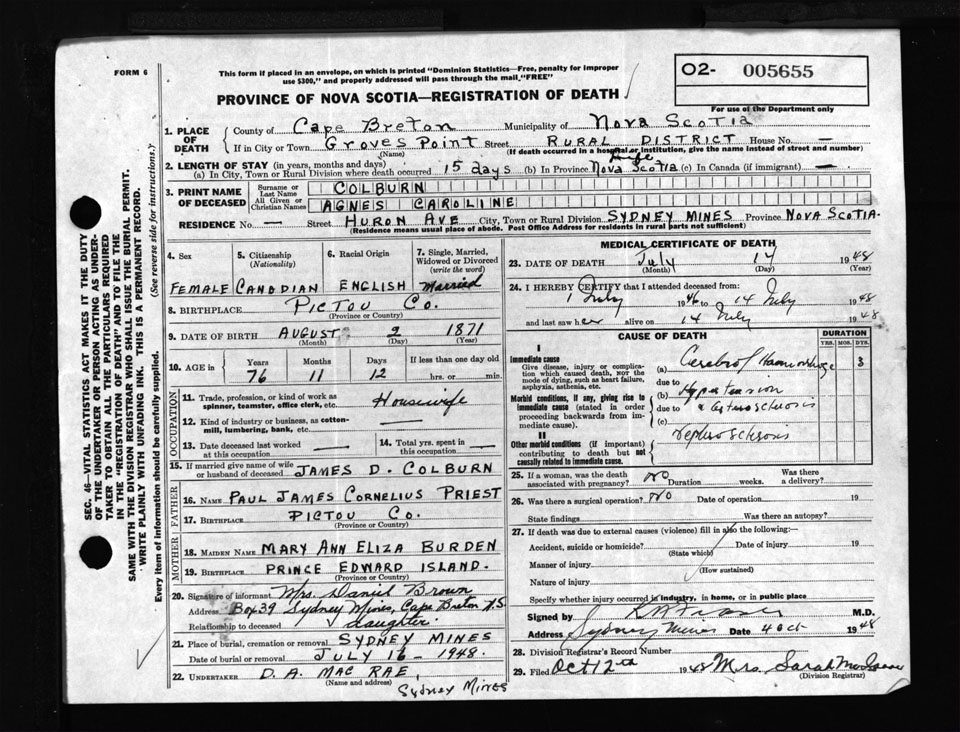 FORM 6
This form if placed in an envelope, on which is printed "Dominion Statistics—Free, penalty for improper
use $300," and properly addressed will pass through the mail "FREE"
PROVINCE OF NOVA SCOTIA—REGISTRATION OF DEATH
O2- 005655
For use of the Department only
1. PLACE OF DEATH
County of Cape Breton Municipality of Nova Scotia
If in City or Town Groves Point Street RURAL DISTRICT House No. —
(Name) (If death occurred in a hospital or institution, give the name instead of street and number)
2. LENGTH OF STAY (in years, months and days) Life
(a) In City, Town or Rural Division where death occurred 15 days (b) In Province Nova Scotia (c) In Canada (if immigrant) —
3. PRINT NAME OF DECEASED
Surname or Last Name COLBURN
All Given or Christian Names AGNES CAROLINE
RESIDENCE No. — Street HURON AVE City, Town or Rural Division SYDNEY MINES Province NOVA SCOTIA.
(Residence means usual place of abode. Post Office Address for residents in rural parts not sufficient)
4. Sex 5. Citizenship (Nationality) 6. Racial Origin 7. Single, Married, Widowed or Divorced (write the word)
FEMALE CANADIAN ENGLISH Married
8. BIRTHPLACE PICTOU CO.
(Province or Country)
9. DATE OF BIRTH AUGUST 2 1871
(Month) (Day) (Year)
10. AGE in Years Months Days If less than one day old
76 11 12 hrs. or min.
OCCUPATION
11. Trade, profession, or kind of work as spinner, teamster, office clerk, etc. Housewife
12. Kind of industry or business, as cotton-mill, lumbering, bank, etc. —
13. Date deceased last worked at this occupation —
14. Total yrs. spent in this occupation —
15. If married give name of wife or husband of deceased JAMES D. COLBURN
FATHER
16. NAME PAUL JAMES CORNELIUS PRIEST
17. BIRTHPLACE PICTOU CO.
(Province or Country)
MOTHER
18. MAIDEN NAME MARY ANN ELIZA BURDEN
19. BIRTHPLACE PRINCE EDWARD ISLAND.
(Province or Country)
20. Signature of informant Mrs. Daniel Brown
Address Box 39 Sydney Mines, Cape Breton N.S.
Relationship to deceased daughter
21. Place of burial, cremation or removal SYDNEY MINES
Date of burial or removal JULY 16 - 1948.
22. UNDERTAKER D. A. MAC RAE,
(Name and address) SYDNEY MINES
MEDICAL CERTIFICATE OF DEATH
23. DATE OF DEATH July 14 1948
(Month) (Day) (Year)
24. I HEREBY CERTIFY that I attended deceased from:
1 July 1946 to 14 July 1948
and last saw her alive on 14 July 1948
CAUSE OF DEATH DURATION
YRS. MOS. DYS.
I
Immediate cause
Give disease, injury or complication which caused death, NOT the mode of dying, such as heart failure, asphyxia, asthenia, etc.
(a) Cerebral Haemorrhage 3
due to
Morbid conditions, if any, giving rise to immediate cause (stated in order proceeding backwards from immediate cause).
(b) Hypertension
due to arteriosclerosis
(c)
II
Other morbid conditions (if important) contributing to death but not causally related to immediate cause.
nephrosclerosis
25. If a woman, was the death associated with pregnancy? NO Duration weeks. Was there a delivery?
26. Was there a surgical operation? NO Date of operation 19
State findings Was there an autopsy?
27. If death was due to external causes (violence) fill in also the following:—
Accident, suicide or homicide? Date of injury 19
(State which)
Manner of injury
(How sustained)
Nature of injury
Specify whether injury occurred in industry, in home, or in public place
Signed by M.D.
Address Sydney Mines Date 4 Oct 1948
28. Division Registrar's Record Number
29. Filed Oct 12th 1948 Mrs. Sarah
(Division Registrar)
SEC. 46—VITAL STATISTICS ACT MAKES IT THE DUTY
OF THE UNDERTAKER OR PERSON ACTING AS UNDER-
TAKER TO OBTAIN ALL THE PARTICULARS REQUIRED
IN THE "REGISTRATION OF DEATH" AND TO FILE THE
SAME WITH THE DIVISION REGISTRAR WHO SHALL ISSUE THE BURIAL PERMIT.
WRITE PLAINLY WITH UNFADING INK. THIS IS A PERMANENT RECORD.
Every item of information should be carefully supplied. (See reverse side for instructions.)